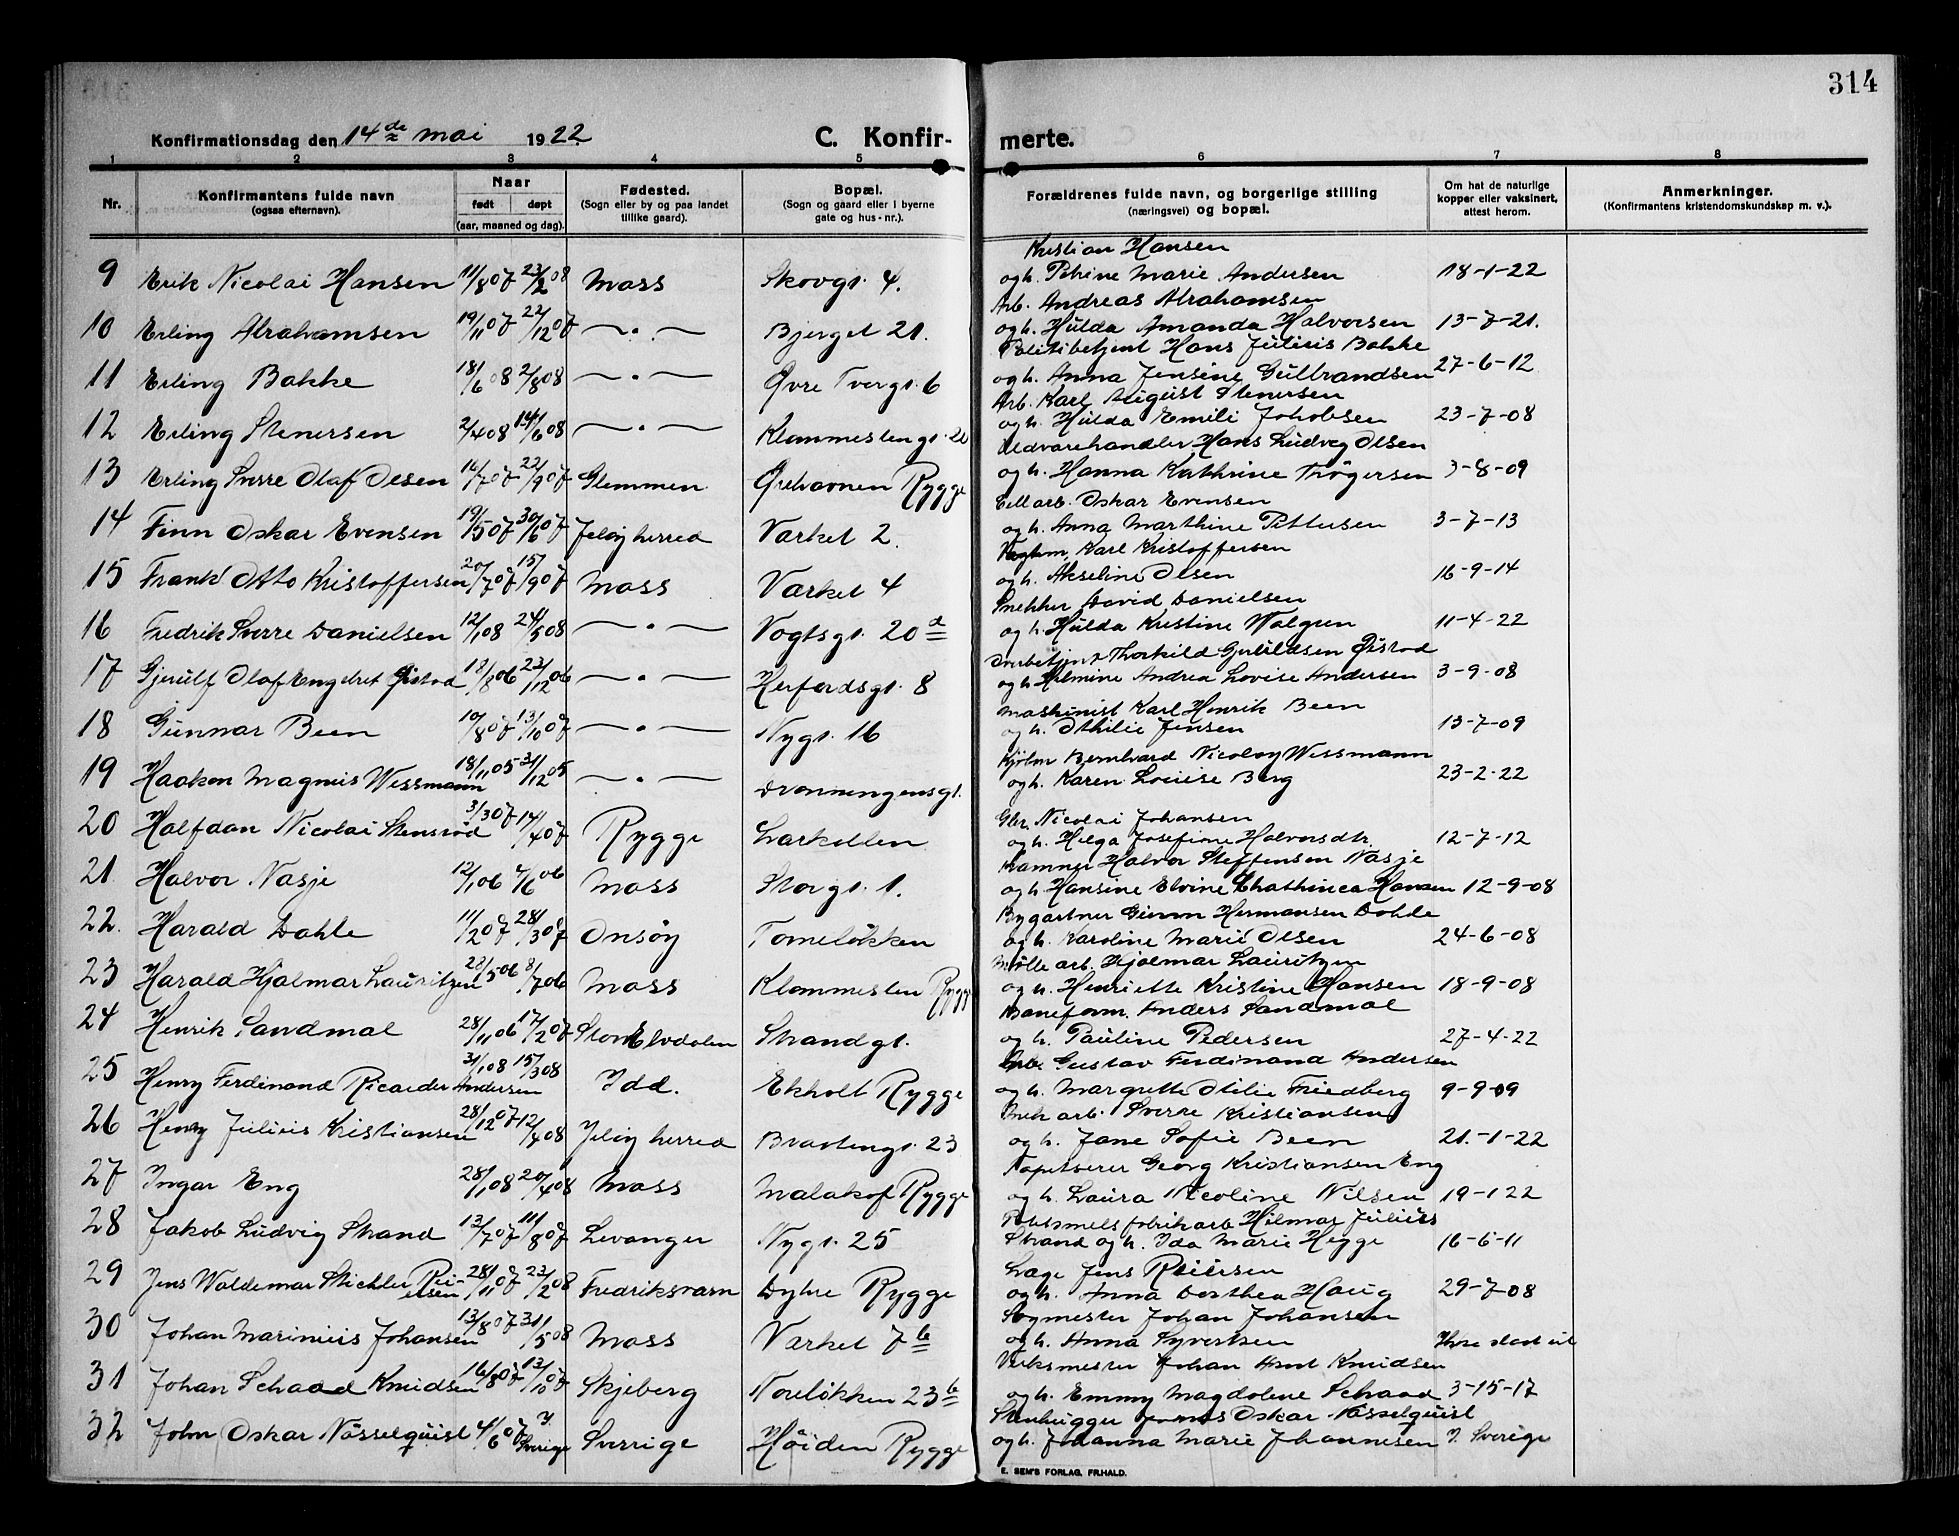 314
Konfirmationsdag den 14de mai 1922. C. Konfirmerte.
1 2 3 4 5 6 7 8
Nr. Konfirmantens fulde navn (ogsaa efternavn). Naar født døpt (aar, maaned og dag). Fødested. (Sogn eller by og paa landet tillike gaard). Bopæl. (Sogn og gaard eller i byerne gate og hus-nr.). Forældrenes fulde navn, og borgerlige stilling (næringsvei) og bopæl. Om hat de naturlige kopper eller vaksinert, attest herom. Anmerkninger. (Konfirmantens kristendomskundskap m. v.).
Kristian Hansen
9 Erik Nicolai Hansen 11/8 07 23/2 08 Moss Skovgt. 4. og h. Petrine Marie Andersen 18-1-22
Arb. Andreas Abrahamsen
10 Erling Abrahamsen 19/11 07 22/12 07 — . — Bjerget 21. og h. Hulda Amanda Halvorsen 13-7-21.
Politibetjent Hans Julius Bakke
11 Erling Bakke 18/6 08 2/8 08 — . — Øvre Tvergt. 6 og h. Anna Jensine Gulbrandsen 27-6-12
Arb. Karl August Stenersen
12 Erling Stenersen 2/4 08 14/6 08 — . — Klommestengt. 20 og h. Hulda Emili Jakobsen 23-7-08
Vedvarehandler Hans Ludvig Olsen
13 Erling Sverre Olaf Olsen 14/7 07 22/9 07 Glemmen Ørehavnen Rygge og h. Hanna Kathrine Thøgersen 3-8-09
Cell arb. Oskar Evensen
14 Finn Oskar Evensen 19/5 07 30/6 07 Jeløy herred Varket 2. og h. Anna Marthine Pettersen 3-7-13
Karl Kristoffersen
15 Frank Otto Kristoffersen 20/7 07 15/9 07 Moss Varket 4 og h. Akseline Olsen 16-9-14
Snekker David Danielsen
16 Fredrik Sverre Danielsen 12/1 08 24/5 08 — . — Vogtsgt. 20d og h. Hulda Kristine Walgren 11-4-22
Thorkild Gjeruldsen Ørstad
17 Gjerulf Olaf Engelret Ørstad 18/8 06 23/12 06 — . — Herfordsgt. 8 og h. Helmine Andrea Lovise Andersen 3-9-08
Maskinist Karl Henrik Been
18 Gunnar Been 10/8 07 13/10 07 — . — Nygt. 16 og h. Othilie Jensen 13-7-09
Kjøbm Bernhard Nicolay Wessmann
19 Haakon Magnus Wessmann 18/11 05 31/12 05 — . — Dronningensgt. og h. Karen Louise Berg 23-2-22
Gbr. Nicolai Johansen
20 Halfdan Nicolai Stensrød 3/3 07 14/4 07 Rygge Larkollen og h. Helga Josefine Halvorsdtr. 12-7-12
Halvor Steffensen Nasje
21. Halvor Nasje 12/1 06 4/6 06 Moss Storgt. 1. og h. Hansine Elvine Hansen 12-9-08
Bygartner Gunn Hermansen Dahle
22. Harald Dahle 11/2 07 28/3 07 Onsøy Tomeløkken og h. Karoline Marie Olsen 24-6-08
Mølle arb. Hjalmar Lauritzen
23 Harald Hjalmar Lauritzen 23/5 06 8/7 06 Moss Klommesten Rygge og h. Henriette Kristine Hansen 18-9-08
Baneform. Anders Sandmal
24 Henrik Sandmal 28/11 06 17/2 07 StorElvdalen Strandgt. og h. Pauline Pedersen 27-4-22
Arb. Gustav Ferdinand Andersen
25 Henry Ferdinand Ricarder Andersen 31/1 08 15/3 08 Idd. Ekholt Rygge og h. Margrette Otilie Friedberg 9-9-09
Mek arb. Sverre Kristiansen
26 Henry Julius Kristiansen 28/12 07 12/4 08 Jeløy herred Bråtengt. 23 og h. Jane Sofie Been 21.-1-22
Tapetserer Georg Kristiansen Eng
27 Ingar Eng 28/1 08 20/4 08 Moss Malakof Rygge og h. Laura Nicoline Nilsen 19-1 22
Hilmar Julius
28 Jakob Ludvig Strand 13/7 07 11/8 07 Levanger Nygt. 25 Strand og h. Ida Marie Hegge 16-6-11
Læge Jens Reiersen
29 Jens Waldemar Stichler Reiersen 28/11 07 23/2 08 Fredriksvarn Dyhre Rygge og h. Anna Dorthea Haug 29-7-08
Sagmester Johan Johansen
30 Johan Marinius Johansen 13/8 07 31/5 08 Moss Varket 7b og h. Anna Syvertsen
Verksmester Johan Amt Knudsen
31 Johan Schaad Knudsen 16/8 07 13/10 07 Skjeberg Noreløkken 23b og h. Emmy Magdolene Schaad 3-15-17
Stenhugger Oskar Nasselquist
32 John Oskar Nasselquist 4/6 07 I Sverige Sverrige Høiden Rygge og h. Johanna Marie Johannesen I Sverige
E. SEM'S FORLAG, FR.HALD.